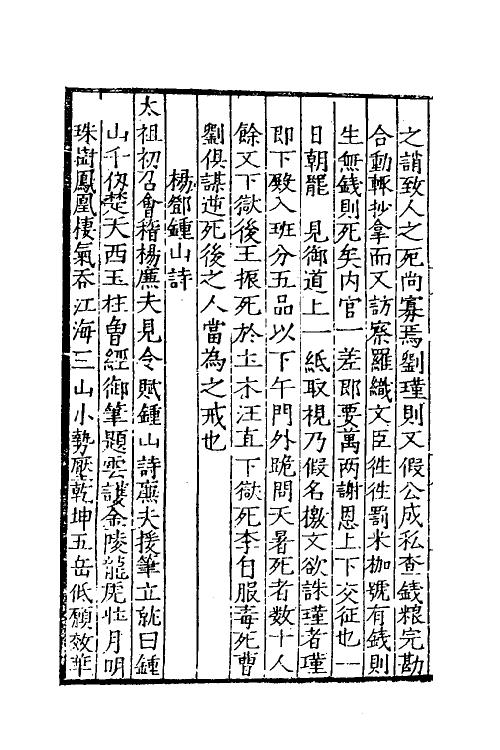 之誚致人之死尚寡焉劉瑾則又假公成私查錢粮完勘
合動輒抄拿而又訪察羅織文臣徃徃罰米枷號有錢則
生無錢則死矣内官一差即要萬两謝恩上下交征也一
日朝罷　見御道上一紙取視乃假名檄文欲誅瑾者瑾
即下殿入班分五品以下午門外跪問天暑死者数十人
餘又下獄後王振死於土木汪直下獄死李白服毒死曹
劉俱謀逆死後之人當為之戒也
楊鄧鍾山詩
太祖初召會稽楊廉夫見令賦鍾山詩廉夫援筆立就曰鍾
山千仭楚天西玉柱曽經御筆題雲護金陵龍虎壮月明
珠樹鳳凰棲氣吞江海三山小勢壓乾坤五岳低願效華